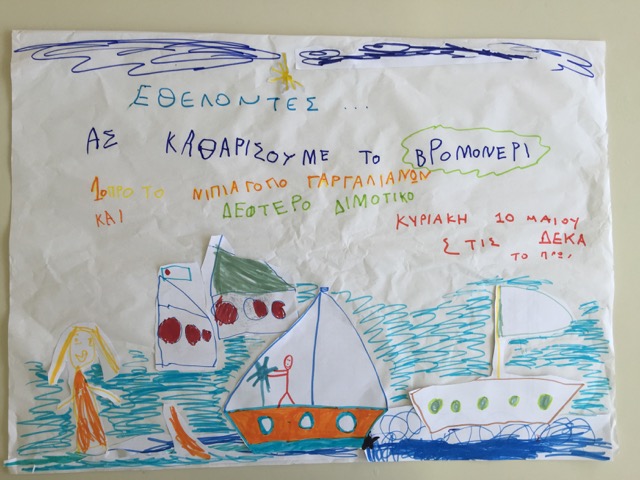 ΕΘΕΛΟΝΤΕΣ ...
ΑΣ ΚΑΘΑΡΙΣΟΥΜΕ ΤΟ ΒΡΟΜΟΝΕΡΙ
ΝΙΠΙΑΓΟΓΙΟ ΓΑΡΓΑΛΙΑΝΩΝ
ΚΑΙ ΔΕΦΤΕΡΟ ΔΙΜΟΤΙΚΟ
ΚΥΡΙΑΚΗ 10 ΜΑΙΟΥ
ΣΤΙΣ ΔΕΚΑ
ΤΟ